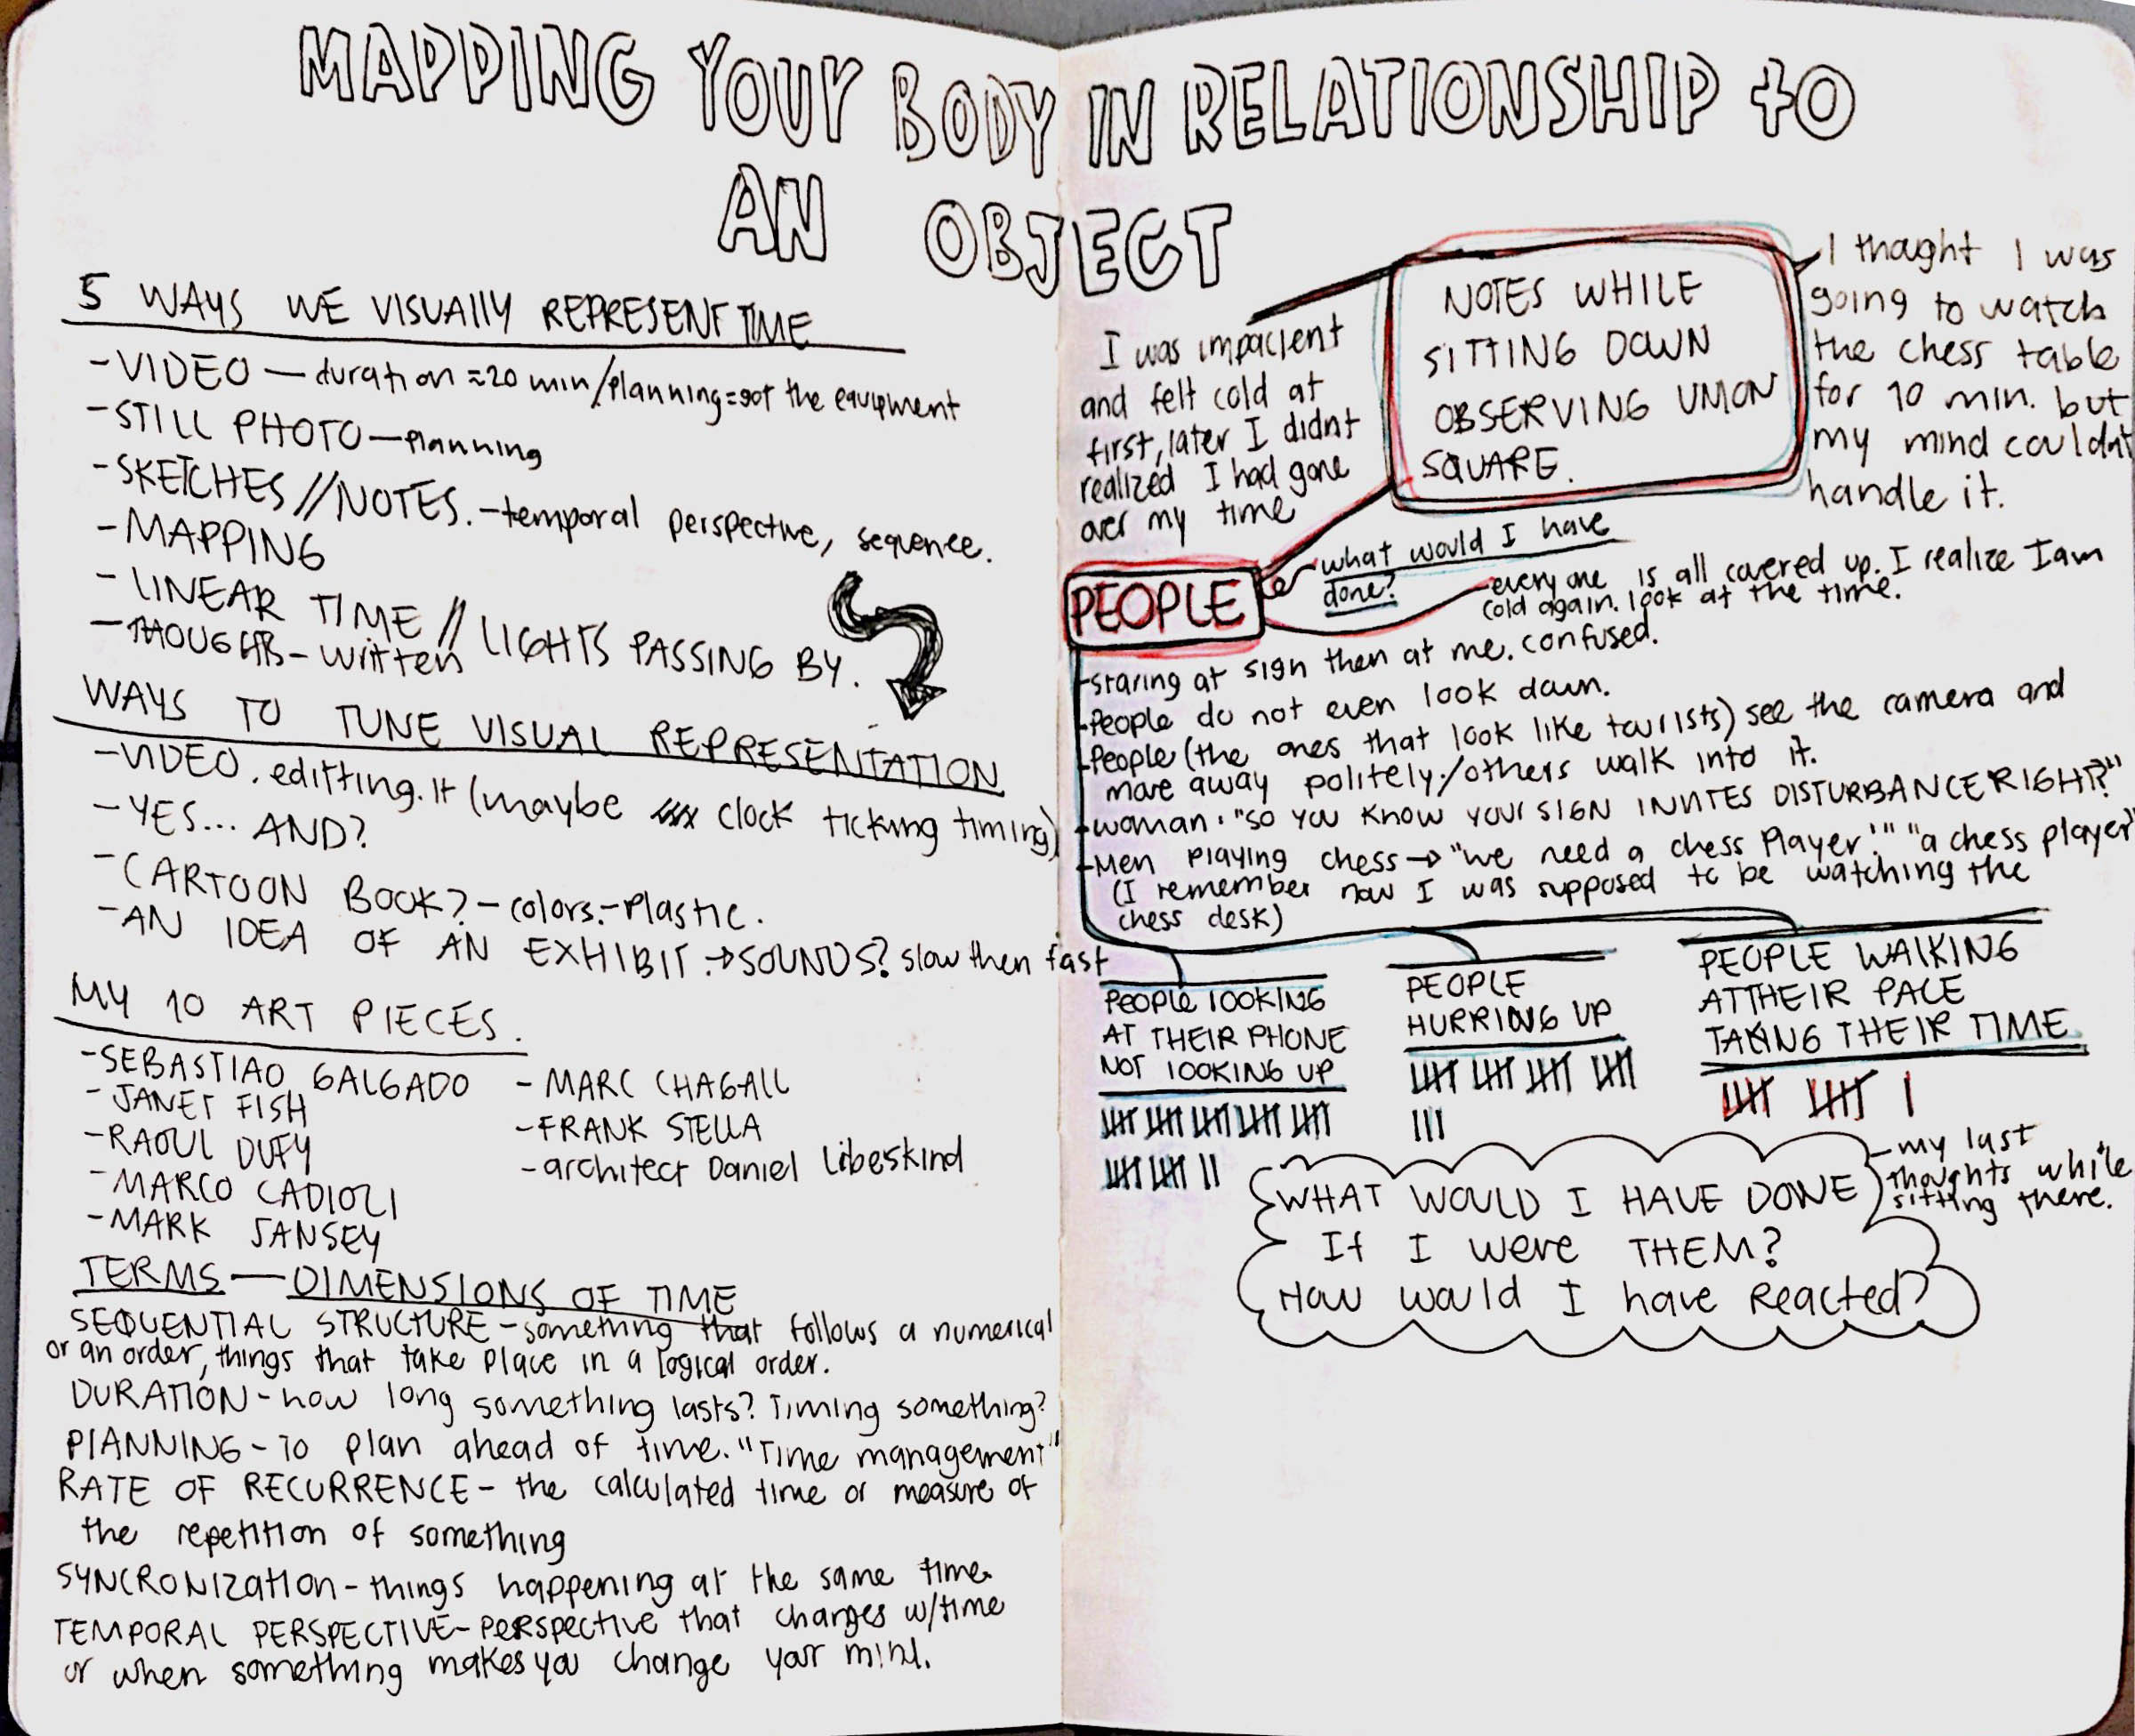 MAPPING YOUR BODY IN RELATIONSHIP to
AN OBJECT
5 WAYS WE VISUALLY REPRESENT TIME
-VIDEO - duration ≈20 min/planning=got the equipment
-STILL PHOTO-planning
-SKETCHES//NOTES.-temporal perspective, sequence.
-MAPPING
-LINEAR TIME // LIGHTS PASSING BY.
-THOUGHTS-written
WAYS TO TUNE VISUAL REPRESENTATION
-VIDEO.editting.It (maybe clock ticking timing)
-YES... AND?
-CARTOON BOOK?-colors.-Plastic.
-AN IDEA OF AN EXHIBIT.→SOUNDS? slow then fast
MY 10 ART PIECES.
-SEBASTIAO GALGADO
-JANET FISH
-RAOUL DUFY
-MARCO CADIOLI
-MARK JANSEY
-MARC CHAGALL
-FRANK STELLA
-architect Daniel Libeskind
TERMS-DIMENSIONS OF TIME
SEQUENTIAL STRUCTURE-something that follows a numerical
or an order, things that take place in a logical order.
DURATION-how long something lasts? Timing something?
PLANNING-To plan ahead of time. "Time management"
RATE OF RECURRENCE- the calculated time or measure of
the repetition of something
SYNCRONIZATION-things happening at the same time.
TEMPORAL PERSPECTIVE-Perspective that changes w/time
or when something makes you change your mind.
NOTES WHILE
SITTING DOWN
OBSERVING UNION
SQUARE.
I was impacient
and felt cold at
first, later I didnt
realized I had gone
over my time
I thought I was
going to watch
the chess table
for 10 min. but
my mind couldnt
handle it.
PEOPLE
what would I have
done?
-every one is all covered up. I realize I am
cold again. look at the time.
-staring at sign then at me. confused.
-People do not even look down.
-People (the ones that look like tourists) see the camera and
move away politely./others walk into it.
-woman: "SO YOU KNOW YOUR SIGN INVITES DISTURBANCE RIGHT?"
-Men Playing chess→"we need a chess Player!" "a chess player"
(I remember now I was supposed to be watching the
chess desk)
PEOPLE LOOKING
AT THEIR PHONE
NOT LOOKING UP
PEOPLE
HURRING UP
PEOPLE WALKING
AT THEIR PACE
TAKING THEIR TIME
WHAT WOULD I HAVE DONE
If I were THEM?
How would I have Reacted?
-my last
thoughts while
sitting there.